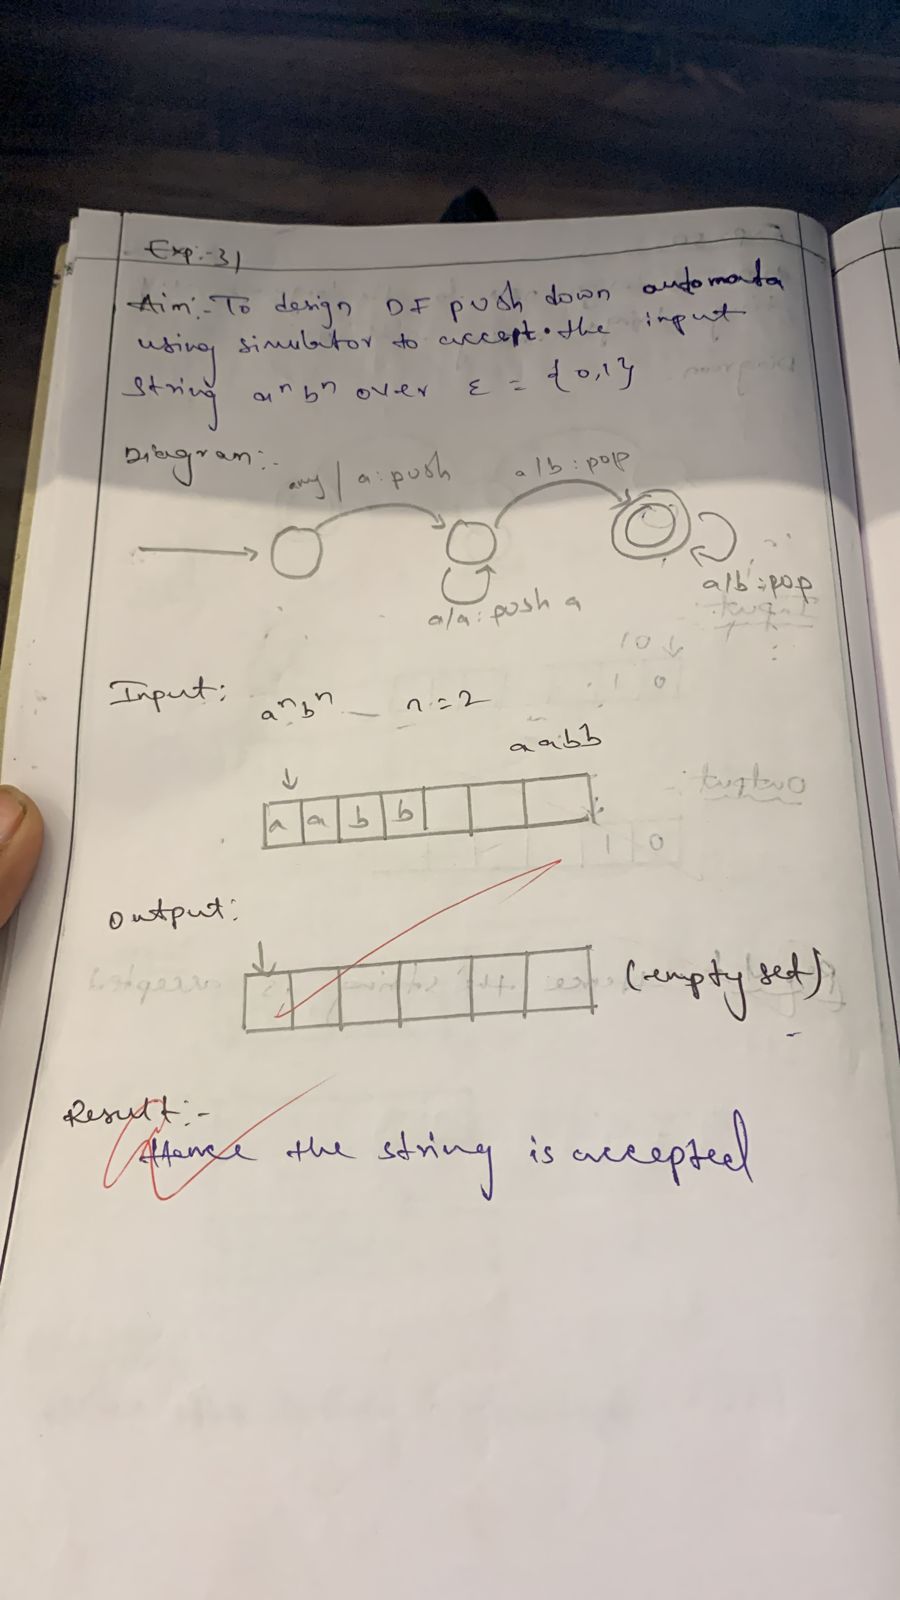 Exp:-31
Aim:- To design DF push down automata
using simulator to accept the input
string aⁿbⁿ over ε = {0,1}
Diagram:-
any / a: push
a/b: pop
a/a: push a
a/b: pop
Input: aⁿbⁿ n=2
aabb
a a b b
Output:
(empty set)
Result:-
Hence the string is accepted